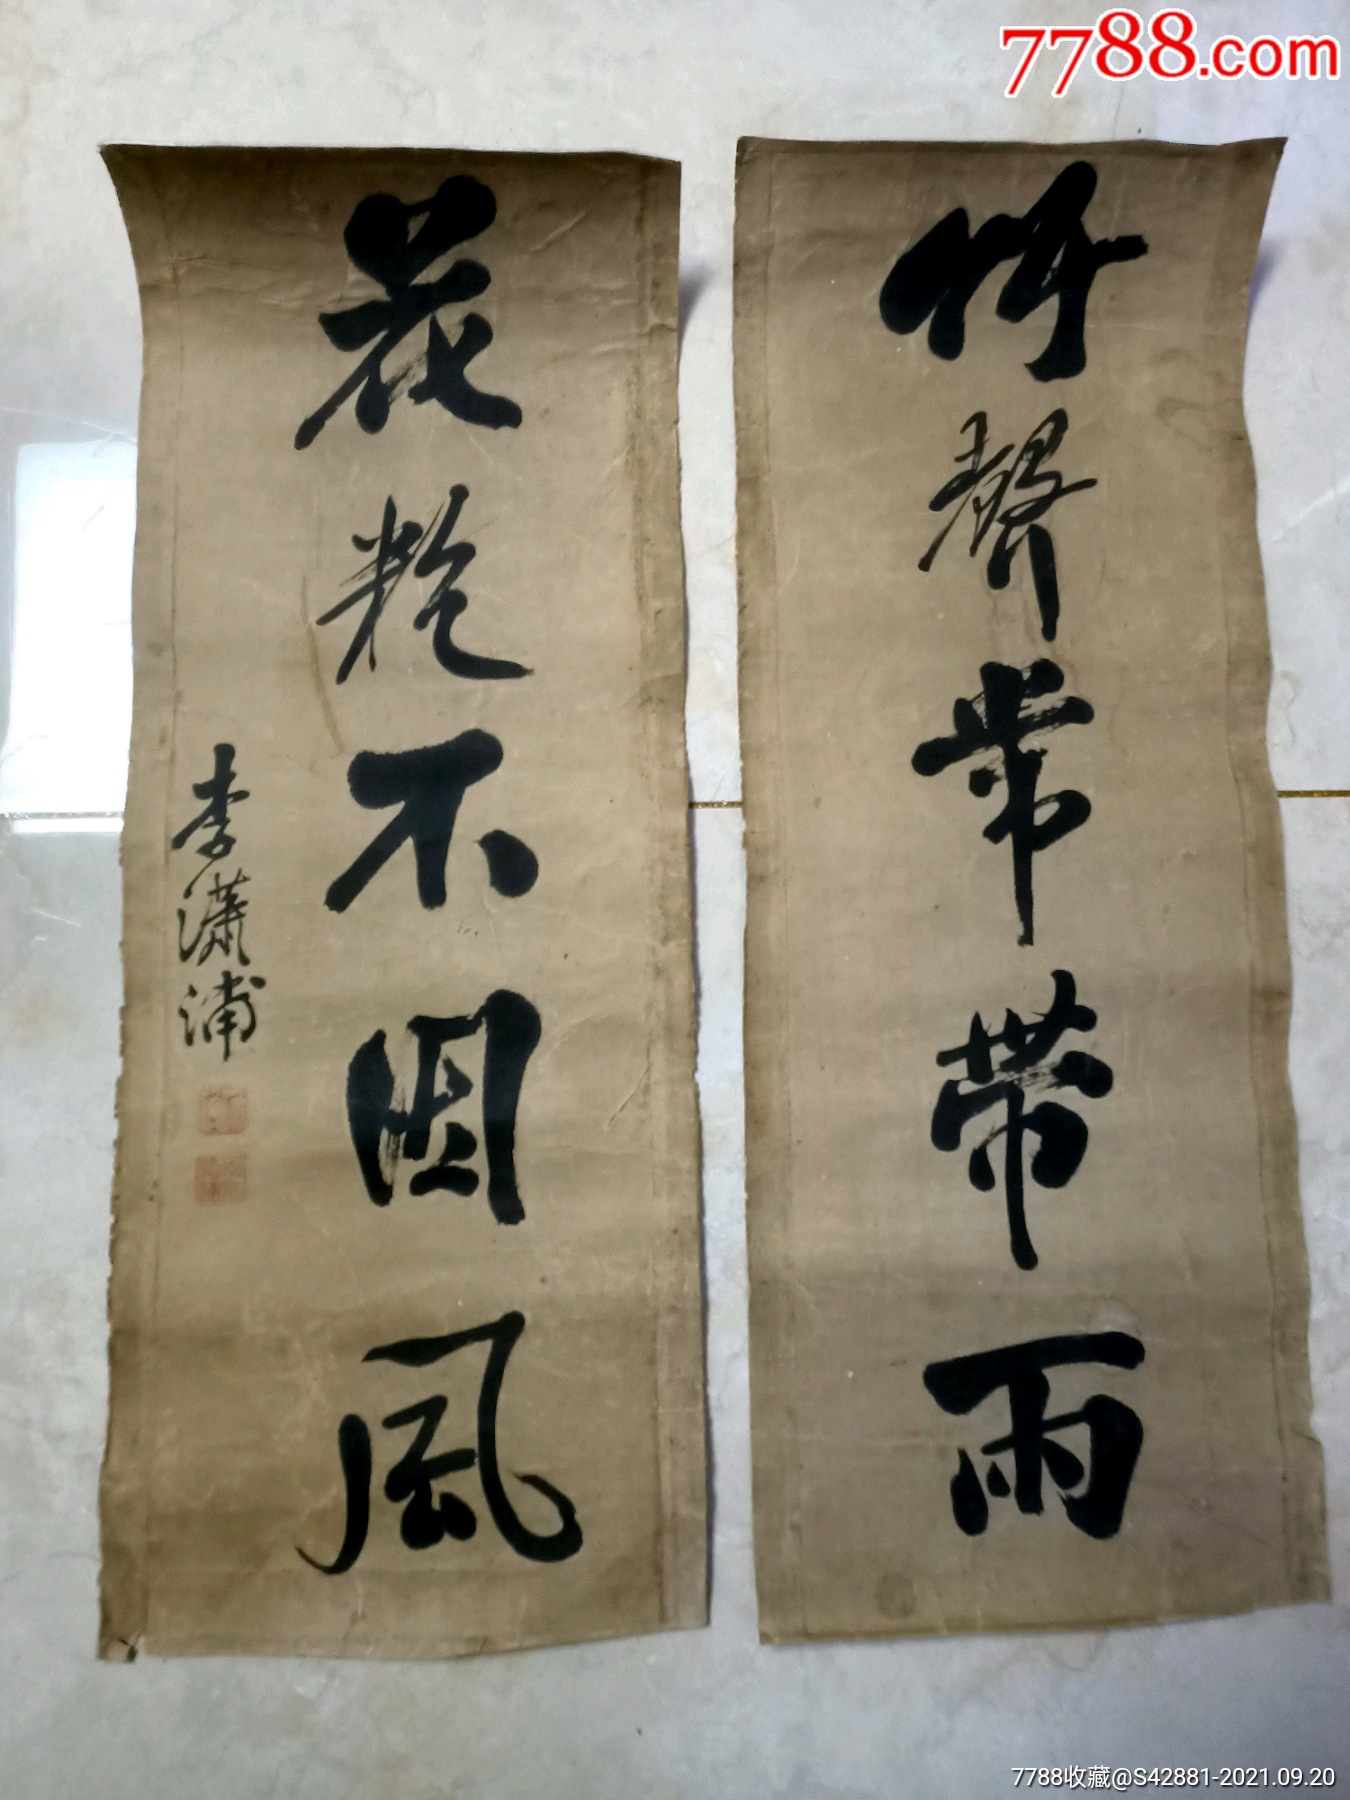 7788.com
竹聲常帶雨
花艳不因風
李瀟浦
7788收藏@S42881-2021.09.20